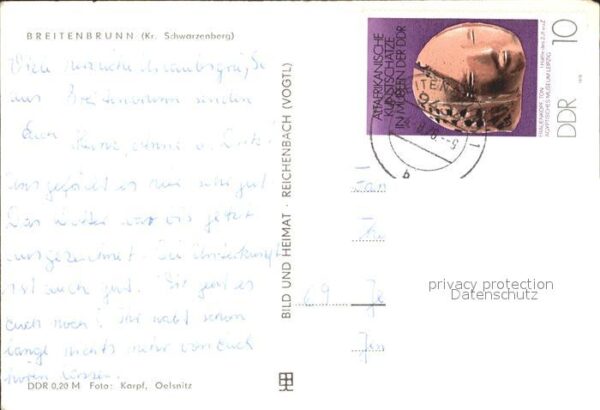 BREITENBRUNN (Kr. Schwarzenberg)
Viele herzliche Urlaubsgrüße
aus Breitenbrunn senden
Euch
Uns gefällt es hier sehr gut.
Das Wetter war bis jetzt
ausgezeichnet. Die Unterkunft
ist auch gut. Wie geht es
euch noch? Ihr habt schon
lange nichts mehr von euch
hören lassen.
DDR 0,20 M Foto: Karpf, Oelsnitz
BILD UND HEIMAT · REICHENBACH (VOGTL)
ALTAFRIKANISCHE
KUNSTSCHÄTZE
IN MUSEEN DER DDR
10
DDR
ÄGYPTISCHES MUSEUM LEIPZIG
Fam
69
Je
privacy protection
Datenschutz